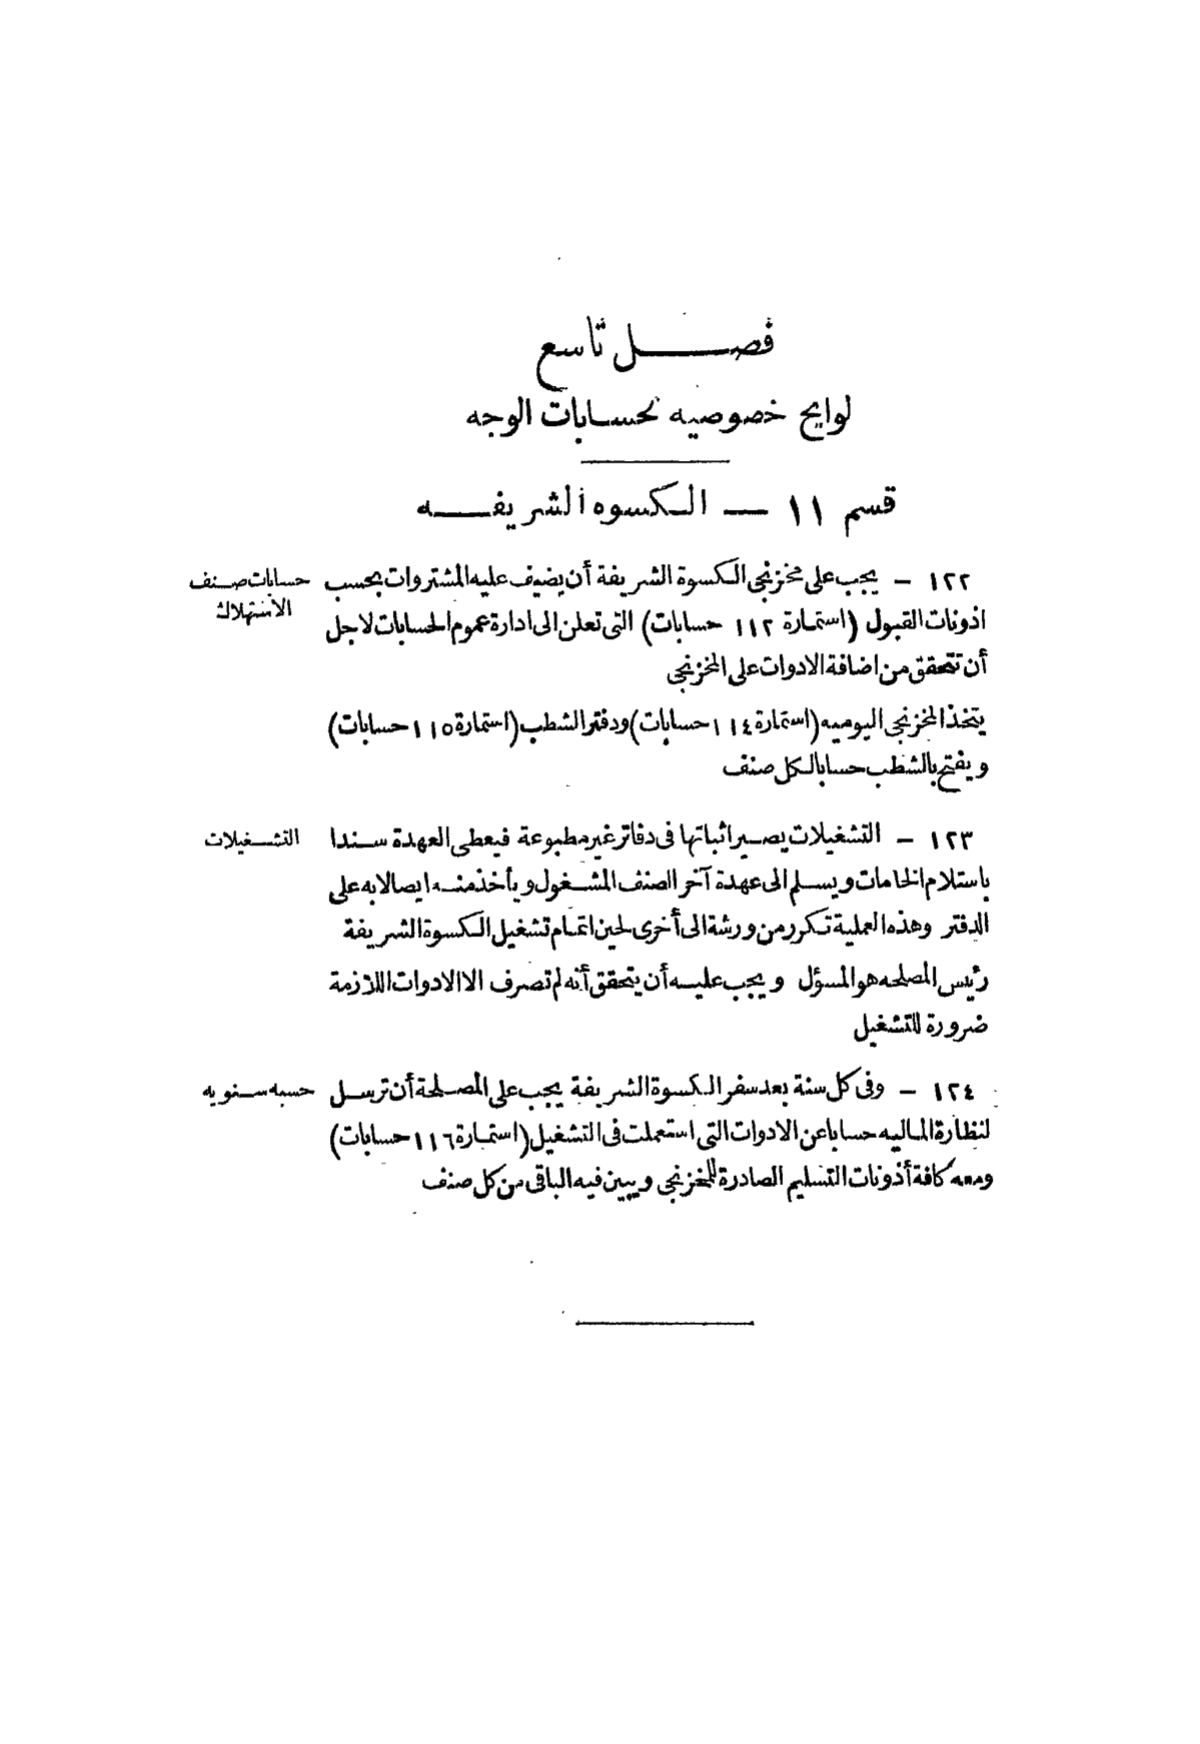 فصل تاسع
لوايح خصوصيه لحسابات الوجه
قسم ١١ — الكسوه الشريفه
١٢٢ — يجب على مخزنجى الكسوة الشريفة أن يضيف عليه المشتروات بحسب
حسابات صنف
الاستهلاك
اذونات القبول (استمارة ١١٢ حسابات) التى تعلن الى ادارة عموم الحسابات لاجل
أن تتحقق من اضافة الادوات على المخزنجى
يتخذ المخزنجى اليوميه (استمارة ١١٤ حسابات) ودفتر الشطب (استمارة ١١٥ حسابات)
ويفتح بالشطب حسابا لكل صنف
١٢٣ — التشغيلات يصير اثباتها فى دفاتر غير مطبوعة فيعطى العهدة سندا
التشغيلات
باستلام الخامات ويسلم الى عهدة آخر الصنف المشغول ويأخذ منه ايصالا به على
الدفتر وهذه العملية تكرر من ورشة الى أخرى لحين اتمام تشغيل الكسوة الشريفة
رئيس المصلحه هو المسؤل ويجب عليه أن يتحقق أنه لم تصرف الا الادوات اللازمة
ضرورة للتشغيل
١٢٤ — وفى كل سنة بعد سفر الكسوة الشريفة يجب على المصلحة أن ترسل
حسبه سنويه
لنظارة الماليه حسابا عن الادوات التى استعملت فى التشغيل (استمارة ١١٦ حسابات)
ومعه كافة أذونات التسليم الصادرة للمخزنجى ويبين فيه الباقى من كل صنف